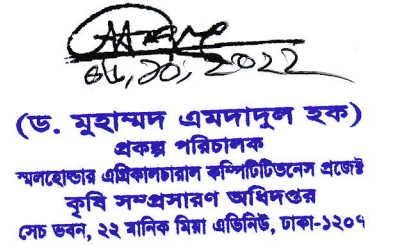 ০৬,১০,২০২২
(ড. মুহাম্মদ এমদাদুল হক)
প্রকল্প পরিচালক
স্মলহোল্ডার এগ্রিকালচারাল কম্পিটিটিভনেস প্রজেক্ট
কৃষি সম্প্রসারণ অধিদপ্তর
সেচ ভবন, ২২ মানিক মিয়া এভিনিউ, ঢাকা-১২০৭